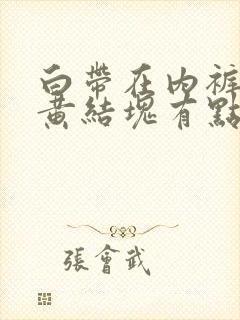 白帶在內褲
黃結塊有點
張會武